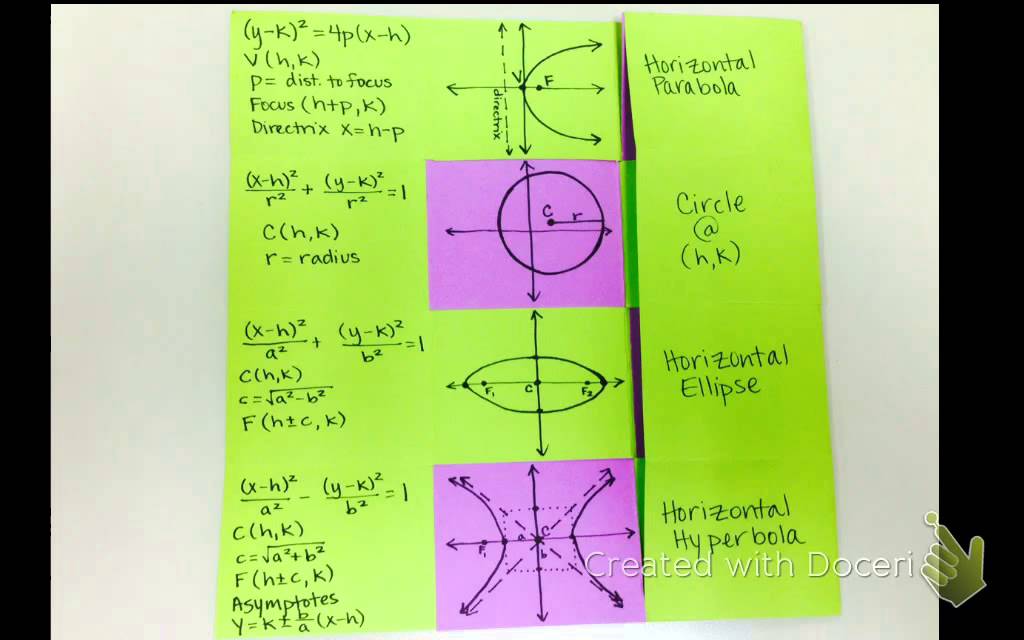 (y-k)² = 4p(x-h)
V(h,k)
P= dist. to focus
Focus (h+p, k)
Directrix x=h-p
directrix
V
F
Horizontal
Parabola
(x-h)²/r² + (y-k)²/r² = 1
C(h,k)
r = radius
C
r
Circle
@
(h,k)
(x-h)²/a² + (y-k)²/b² = 1
C(h,k)
c=√a²-b²
F(h±c, k)
F₁
C
F₂
Horizontal
Ellipse
(x-h)²/a² - (y-k)²/b² = 1
C(h,k)
c=√a²+b²
F(h±c, k)
Asymptotes
Y=K±b/a(x-h)
F₁
a
C
b
Horizontal
Hyperbola
Created with Doceri